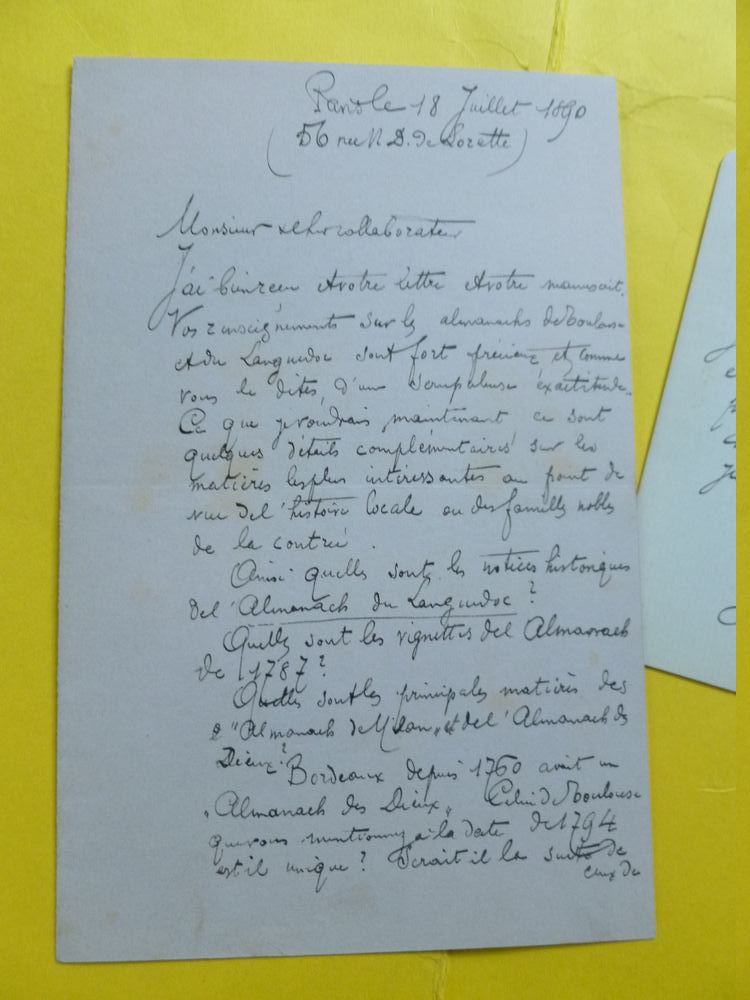 Paris le 18 Juillet 1890
(56 rue N D. de Lorette)
Monsieur et cher collaborateur
J'ai bien reçu et votre lettre et votre manuscrit.
Vos renseignements sur les almanachs de Toulouse
et du Languedoc sont fort précieux et, comme
vous le dites, d'une scrupuleuse exactitude.
Ce que je voudrais maintenant ce sont
quelques détails complémentaires sur les
matières les plus intéressantes au point de
vue de l'histoire locale ou des familles nobles
de la contrée.
Ainsi quelles sont les notices historiques
de l'Almanach du Languedoc ?
Quelles sont les vignettes de l'Almanach
de 1787 ?
Quelles sont les principales matières des
"Almanach de Milan" et de l'Almanach des
Dieux ?
Bordeaux depuis 1760 avait un
"Almanach des Dieux". Celui de Toulouse
que vous mentionnez à la date de 1794
est il unique ? Serait il la suite de
ceux de